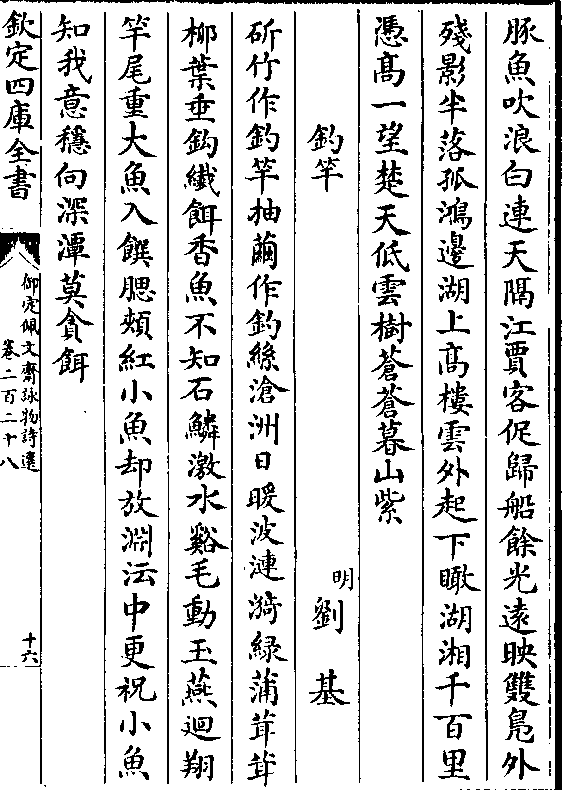 豚魚吹浪白連天隔江賈客促歸船餘光遠映雙鳬外
殘影半落孤鴻邊湖上髙樓雲外起下瞰湖湘千百里
憑髙一望楚天低雲樹蒼蒼暮山紫
釣竿
明劉基
斫竹作釣竿抽繭作釣絲滄洲日暖波漣漪緑蒲茸茸
柳葉垂鈎纎餌香魚不知石鱗激水谿毛動玉燕迴翔
竿尾重大魚入饌腮頰紅小魚却放淵沄中更祝小魚
知我意穩向深潭莫貪餌
欽定四庫全書
御定佩文齋詠物詩選
卷二百二十八
十六